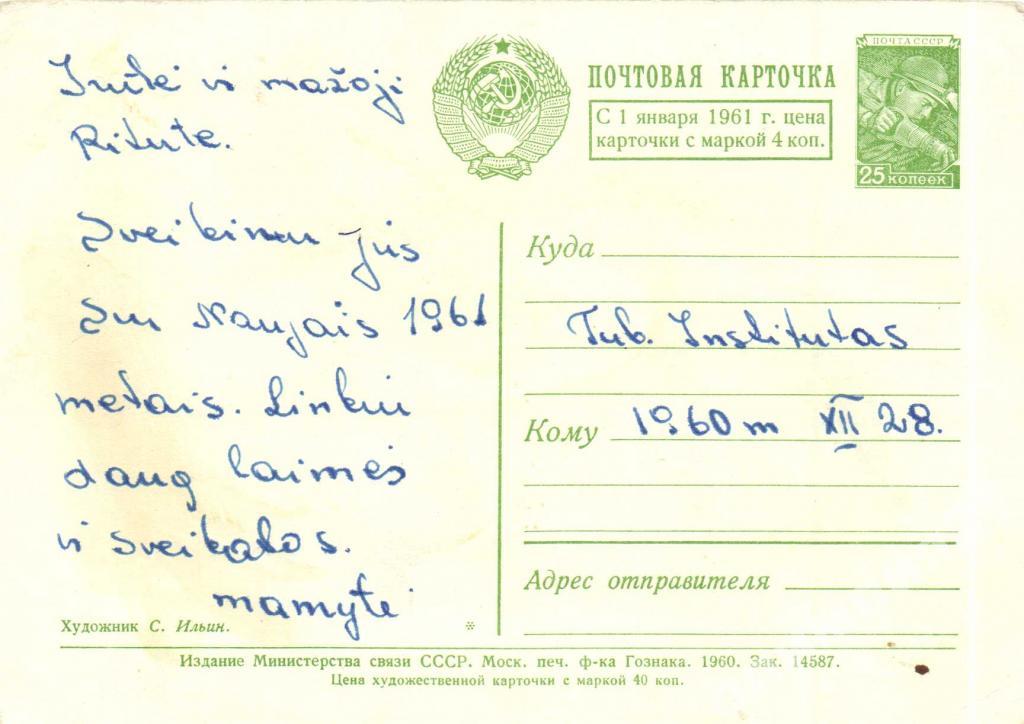 Jrute ir mažoji
Ritute.
Sveikinu jus
su Naujais 1961
metais. Linkiu
daug laimės
ir sveikatos.
mamytė
Художник С. Ильин.
*
ПОЧТОВАЯ КАРТОЧКА
С 1 января 1961 г. цена
карточки с маркой 4 коп.
ПОЧТА СССР
25 КОПЕЕК
Куда
Tub. Institutas
Кому 1960 m XII 28.
Адрес отправителя
Издание Министерства связи СССР. Моск. печ. ф-ка Гознака. 1960. Зак. 14587.
Цена художественной карточки с маркой 40 коп.